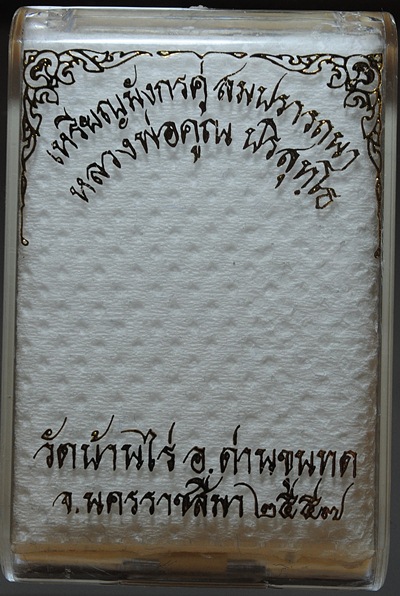 เหรียญมังกรคู่ สมปรารถนา
หลวงพ่อคูณ ปริสุทฺโธ
วัดบ้านไร่ อ.ด่านขุนทด
จ.นครราชสีมา ๒๕๕๗